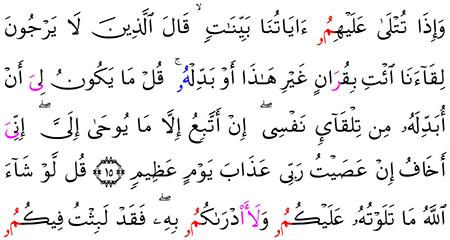 وَإِذَا تُتْلَىٰ عَلَيْهِمُۥ ءَايَاتُنَا بَيِّنَاتٍۙ قَالَ ٱلَّذِينَ لَا يَرْجُونَ
لِقَآءَنَا ٱئْتِ بِقُرَانٍ غَيْرِ هَٰذَا أَوْ بَدِّلْهُۥۚ قُلْ مَا يَكُونُ لِىَ أَنْ
أُبَدِّلَهُۥ مِن تِلْقَآىِٕ نَفْسِىٓۖ إِنْ أَتَّبِعُ إِلَّا مَا يُوحَىٰٓ إِلَىَّۖ إِنِّىَ
أَخَافُ إِنْ عَصَيْتُ رَبِّى عَذَابَ يَوْمٍ عَظِيمٍ ١٥ قُل لَّوْ شَآءَ
ٱللَّهُ مَا تَلَوْتُهُۥ عَلَيْكُمُۥ وَلَأَدْرَىٰكُمُۥ بِهِۦۖ فَقَدْ لَبِثْتُ فِيكُمُۥ